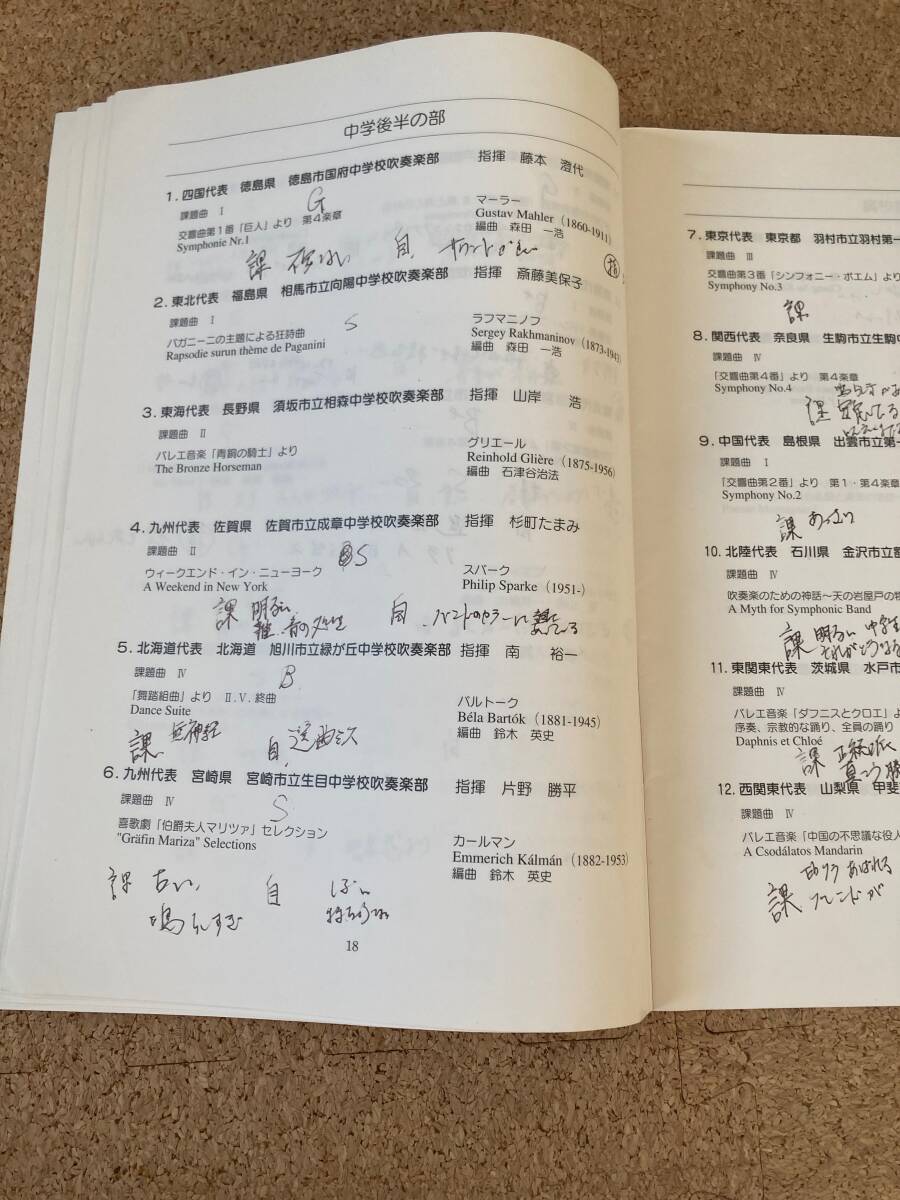 中学後半の部
1. 四国代表 徳島県 徳島市国府中学校吹奏楽部 指揮 藤本 澄代
課題曲 Ⅰ G
交響曲第1番「巨人」より 第4楽章
Symphonie Nr.1
マーラー
Gustav Mahler (1860-1911)
編曲 森田 一浩
課 自
指
2. 東北代表 福島県 相馬市立向陽中学校吹奏楽部 指揮 斎藤美保子
課題曲 Ⅰ S
パガニーニの主題による狂詩曲
Rapsodie surun thème de Paganini
ラフマニノフ
Sergey Rakhmaninov (1873-1943)
編曲 森田 一浩
3. 東海代表 長野県 須坂市立相森中学校吹奏楽部 指揮 山岸 浩
課題曲 Ⅱ
バレエ音楽「青銅の騎士」より
The Bronze Horseman
グリエール
Reinhold Glière (1875-1956)
編曲 石津谷治法
4. 九州代表 佐賀県 佐賀市立成章中学校吹奏楽部 指揮 杉町たまみ
課題曲 Ⅱ S
ウィークエンド・イン・ニューヨーク
A Weekend in New York
スパーク
Philip Sparke (1951-)
課 明るい 自
5. 北海道代表 北海道 旭川市立緑が丘中学校吹奏楽部 指揮 南 裕一
課題曲 Ⅳ B
「舞踏組曲」より Ⅱ.Ⅴ.終曲
Dance Suite
バルトーク
Béla Bartók (1881-1945)
編曲 鈴木 英史
課 無神経 自 選曲ミス
6. 九州代表 宮崎県 宮崎市立生目中学校吹奏楽部 指揮 片野 勝平
課題曲 Ⅳ S
喜歌劇「伯爵夫人マリツァ」セレクション
"Gräfin Mariza" Selections
カールマン
Emmerich Kálmán (1882-1953)
編曲 鈴木 英史
課 古い 自
鳴らしすぎ
18
7. 東京代表 東京都 羽村市立羽村第一
課題曲 Ⅲ
交響曲第3番「シンフォニー・ポエム」より
Symphony No.3
課
8. 関西代表 奈良県 生駒市立生駒中
課題曲 Ⅳ
「交響曲第4番」より 第4楽章
Symphony No.4
課
9. 中国代表 島根県 出雲市立第一
課題曲 Ⅰ
「交響曲第2番」より 第1・第4楽章
Symphony No.2
課 あっさり
10. 北陸代表 石川県 金沢市立
課題曲 Ⅳ
吹奏楽のための神話〜天の岩屋戸の物
A Myth for Symphonic Band
課 明るい 中学生
それがどうなる
11. 東関東代表 茨城県 水戸市
課題曲 Ⅳ
バレエ音楽「ダフニスとクロエ」より
序奏、宗教的な踊り、全員の踊り
Daphnis et Chloé
課 正統派
真こう勝
12. 西関東代表 山梨県 甲斐
課題曲 Ⅳ
バレエ音楽「中国の不思議な役人
A Csodálatos Mandarin
あばれる
課 ブレンドが